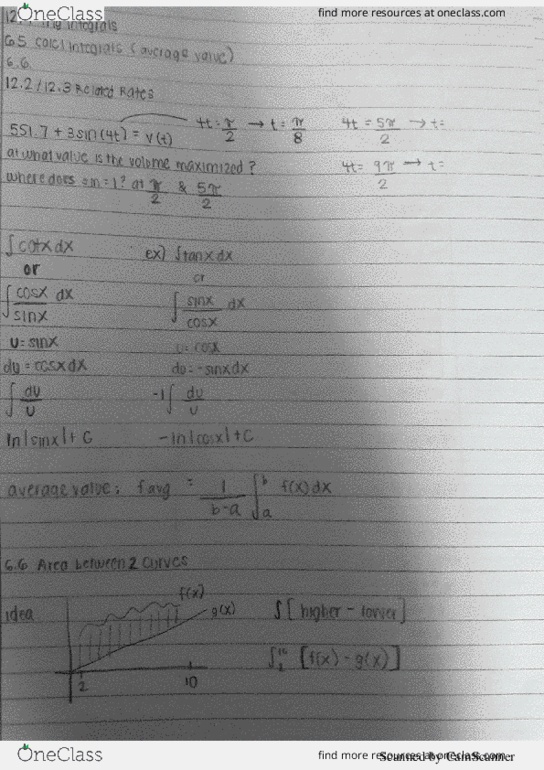 OneClass
find more resources at oneclass.com
12. Trig integrals
6.5 Calc1 integrals (average value)
6.6
12.2/12.3 Related Rates
551.7 + 3sin(4t) = v(t)
4t = π/2 → t = π/8
4t = 5π/2 → t=
at what value is the volume maximized?
4t = 9π/2 → t=
where does sin = 1? at π/2 & 5π/2
∫cotxdx
ex) ∫tanxdx
or
or
∫ cosx/sinx dx
∫ sinx/cosx dx
u = sinx
u = cosx
du = cosxdx
du = -sinxdx
∫ du/u
-1∫ du/u
ln|sinx| + C
-ln|cosx| + C
average value: f avg = 1/(b-a) ∫_a^b f(x)dx
6.6 Area between 2 curves
idea
f(x)
g(x)
2
10
∫[higher - lower]
∫_2^10 [f(x) - g(x)]
OneClass
find more resources at oneclass.com
Scanned by CamScanner